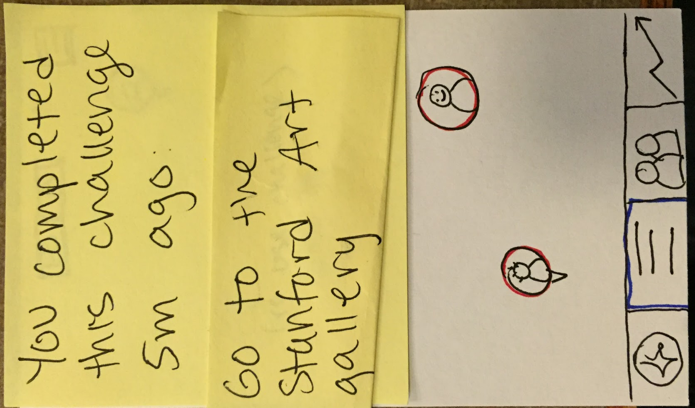 You completed
this challenge
5m ago:
Go to the
Stanford Art
gallery